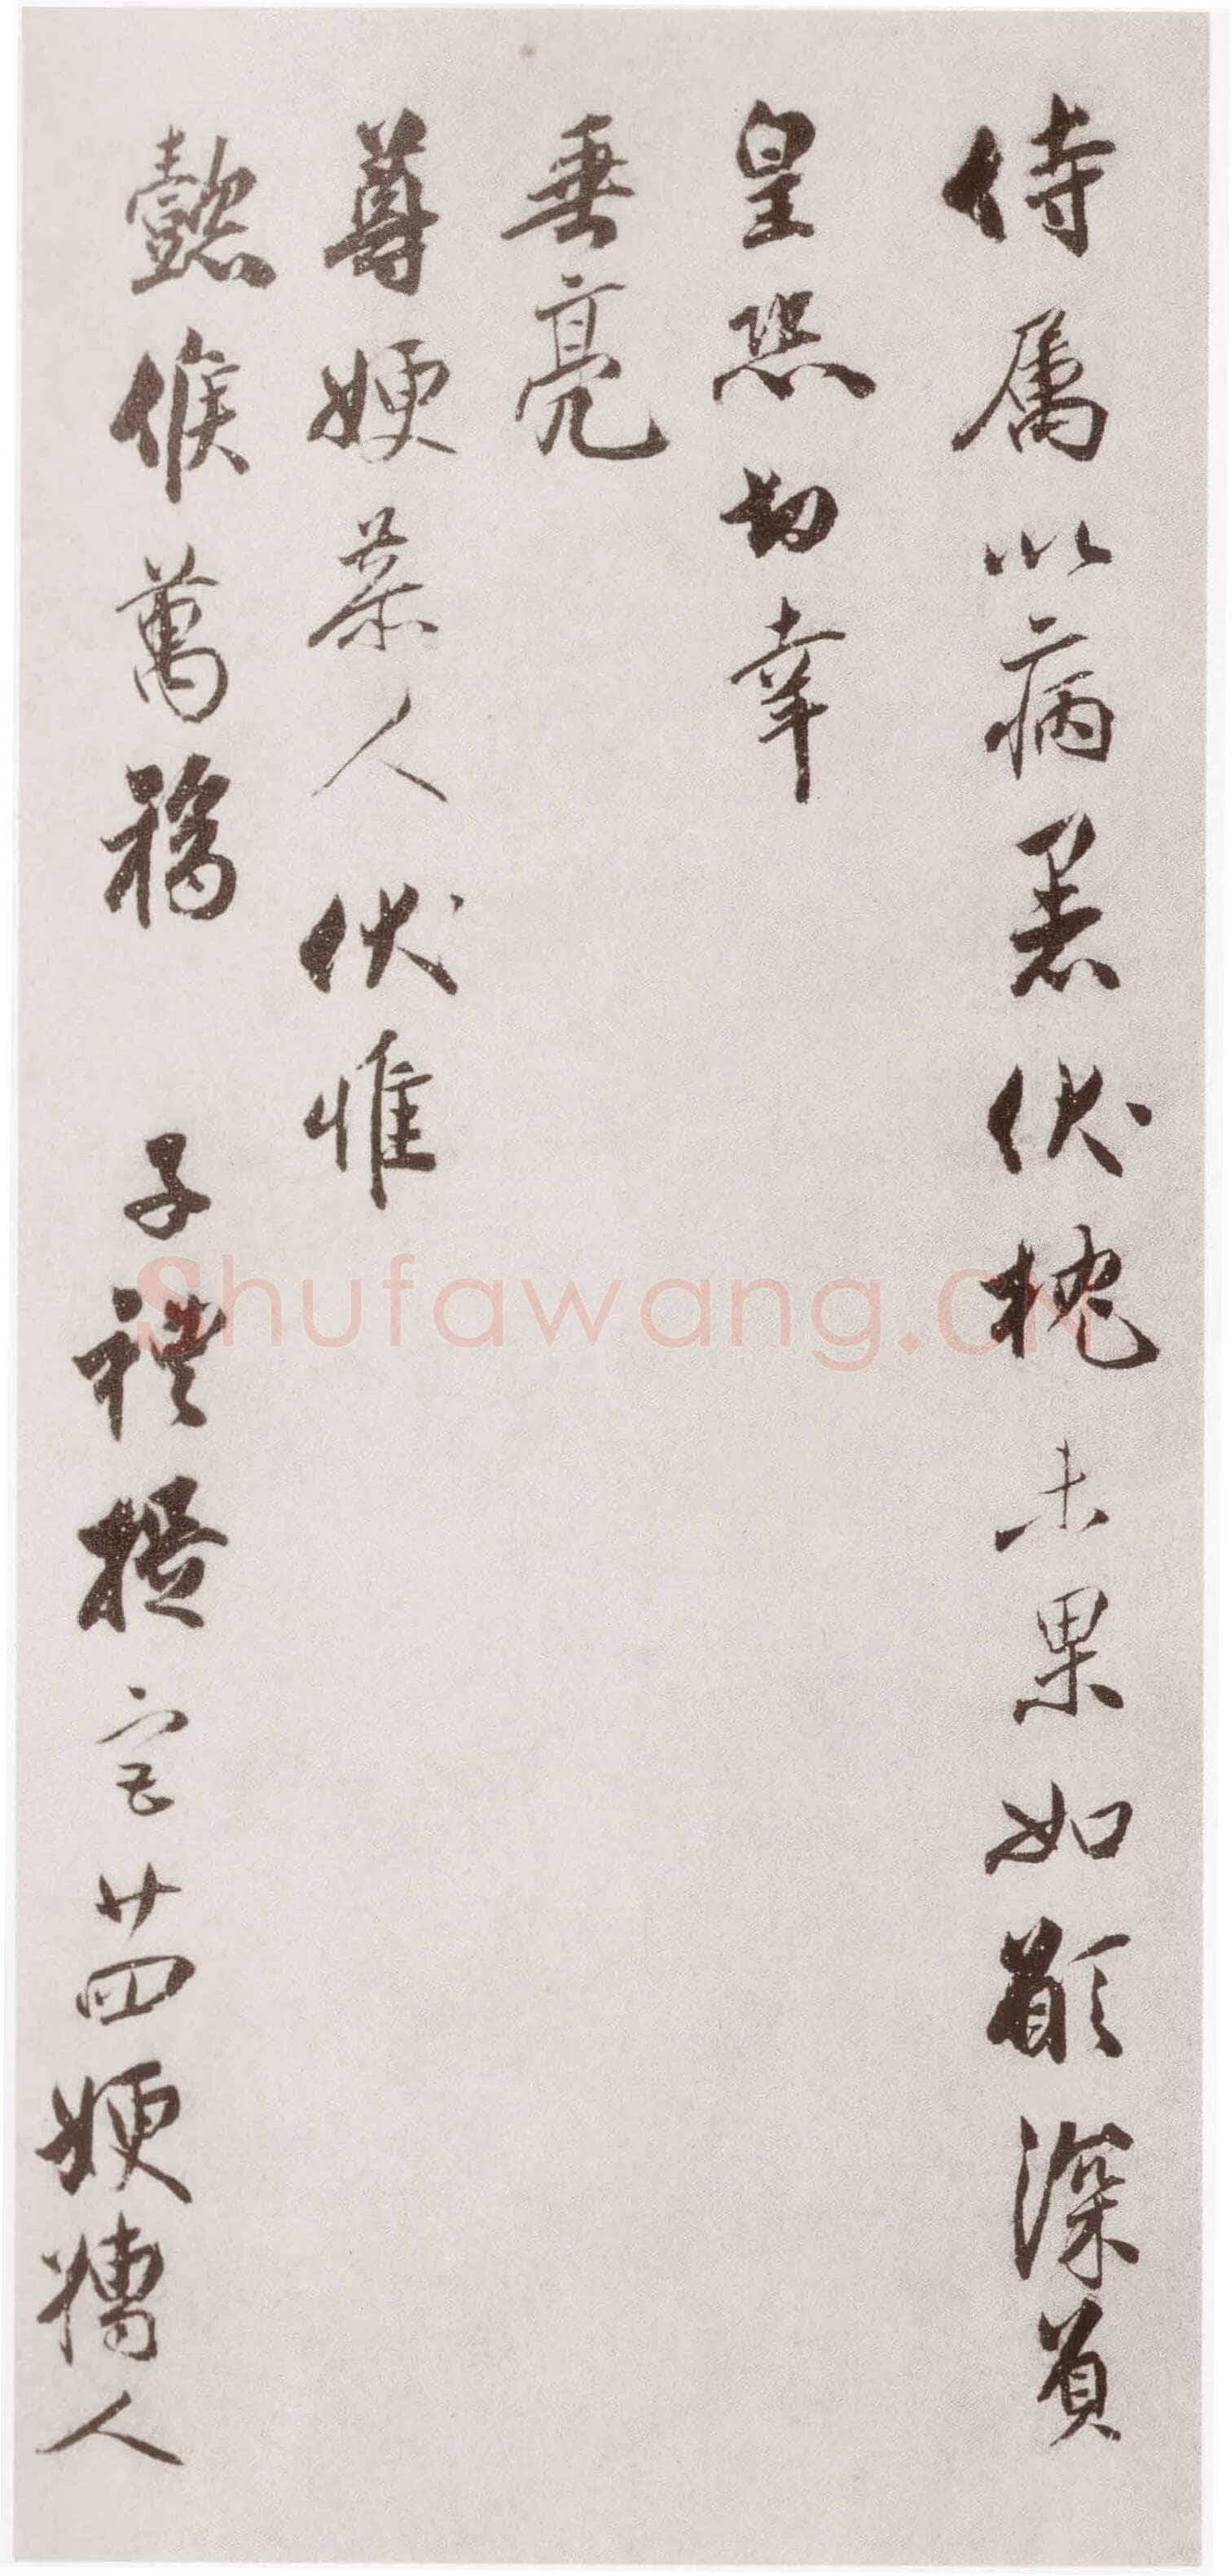 侍属以病恙伏枕未果如願深負
皇恐切幸
垂亮
尊嫂恭人伏惟
懿候萬福 子禮提宮廿四嫂孺人
Shufawang.cn